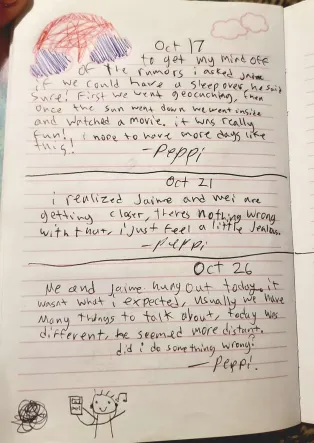 Oct 17
to get my mind off
of the rumors i asked Jaime
if we could have a sleepover, he said
Sure! First we went geocaching, then
once the sun went down we went inside
and watched a movie. it was really
fun! i hope to have more days like
this!
-Peppi
Oct 21
i realized Jaime and wei are
getting closer, theres nothing wrong
with that, i just feel a little jealous.
-Peppi
Oct 26
Me and Jaime hung out today. it
wasnt what i expected, Usually we have
many things to talk about, today was
different, he seemed more distant.
did i do something wrong?
-Peppi.